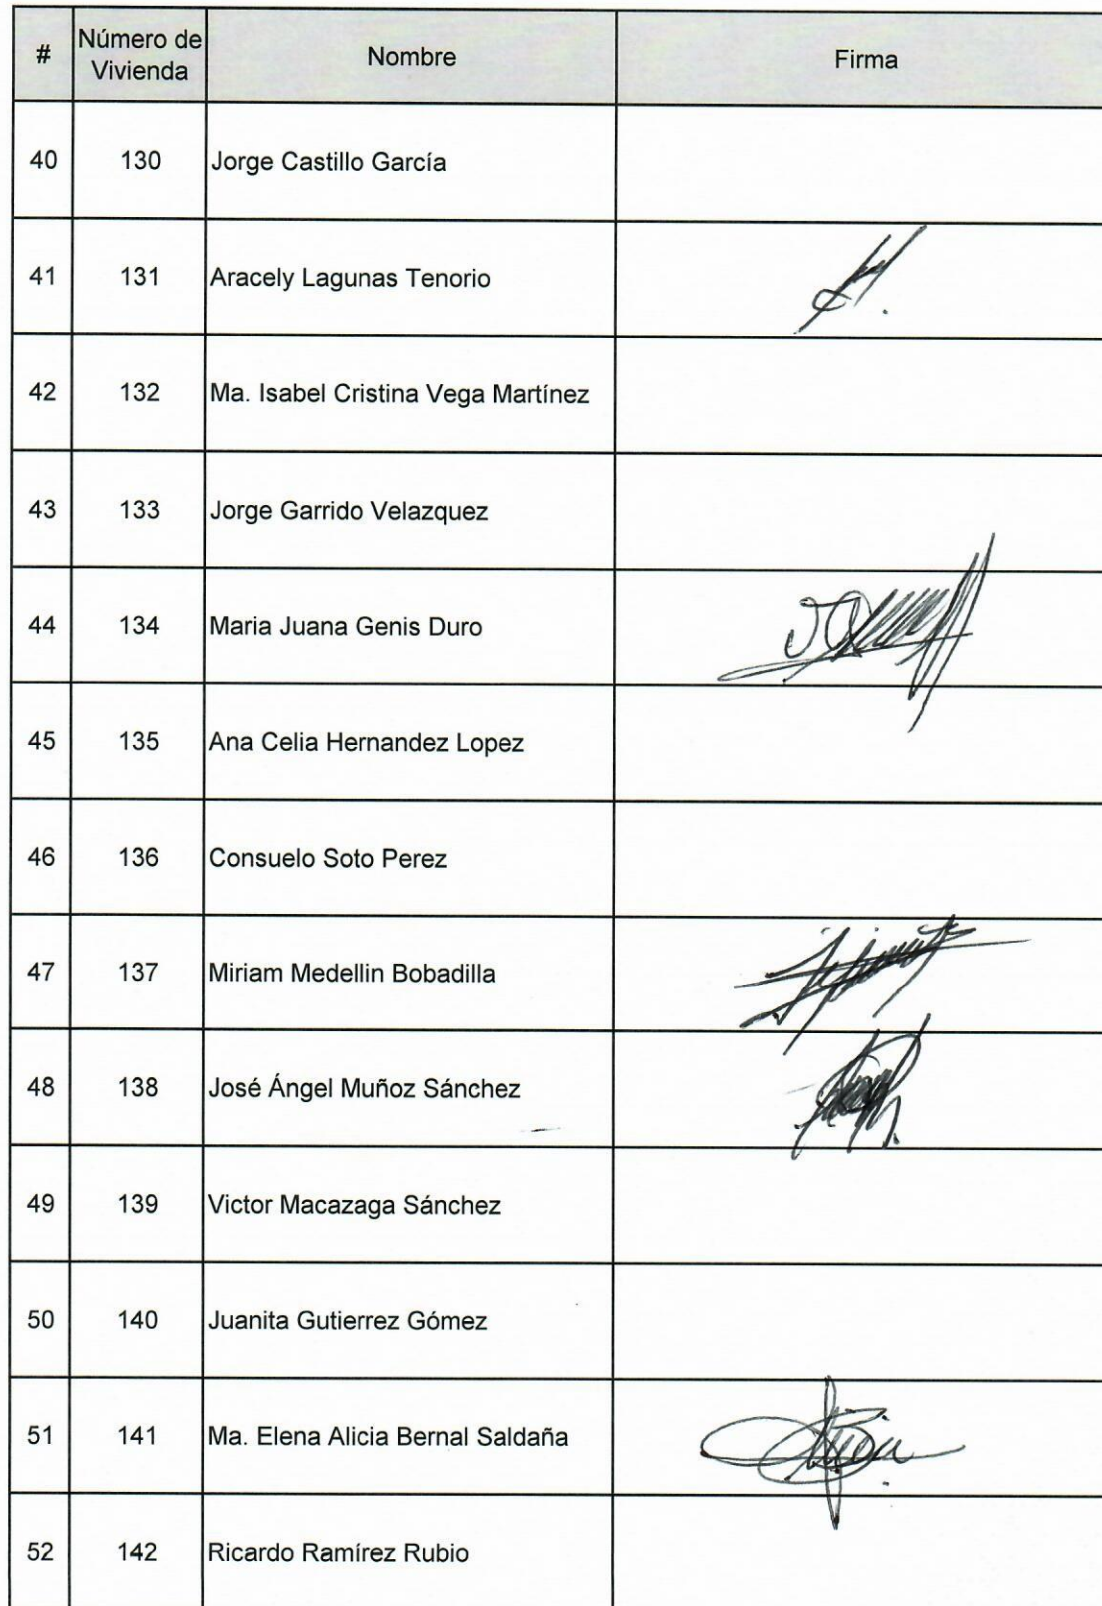 # Número de Vivienda Nombre Firma
40 130 Jorge Castillo García
41 131 Aracely Lagunas Tenorio
42 132 Ma. Isabel Cristina Vega Martínez
43 133 Jorge Garrido Velazquez
44 134 Maria Juana Genis Duro
45 135 Ana Celia Hernandez Lopez
46 136 Consuelo Soto Perez
47 137 Miriam Medellin Bobadilla
48 138 José Ángel Muñoz Sánchez
49 139 Victor Macazaga Sánchez
50 140 Juanita Gutierrez Gómez
51 141 Ma. Elena Alicia Bernal Saldaña
52 142 Ricardo Ramírez Rubio